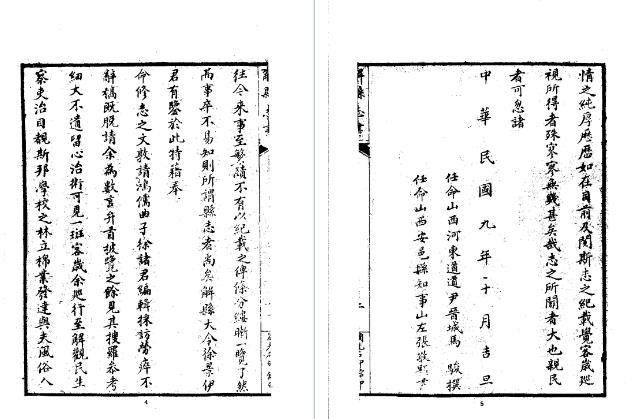 往今來事至繁賾不有以紀載之俾條分縷晰一覽了然
而事卒不易知則所謂縣志者尚矣解縣大令徐景伊
君有鑒於此特藉奉
命修志之文敦請鴻儒曲子徐諸君編輯採訪勞瘁不
辭稿既脫請余為數言弁首披覽之餘見其搜羅參考
細大不遺留心治術可見一斑客歲余巡行至解觀民生
察吏治目覩斯邦學校之林立棉業發達與夫風俗人
4
情之純厚歷歷如在目前及閱斯志之紀載覺客歲巡
視所得者殊寥寥無幾甚矣哉志之所關者大也親民
者可忽諸
中華民國九年十月吉旦
任命山西河東道道尹晉城馬駿撰
任命山西安邑縣知事山左張敬熙書
解縣志書
5